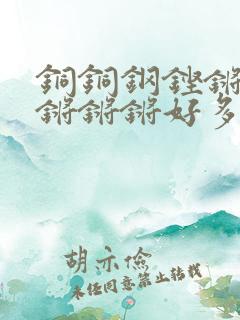 銅銅鋼鏗鏘
鏘鏘鏘好多
胡亦瑜
未经同意禁止转载